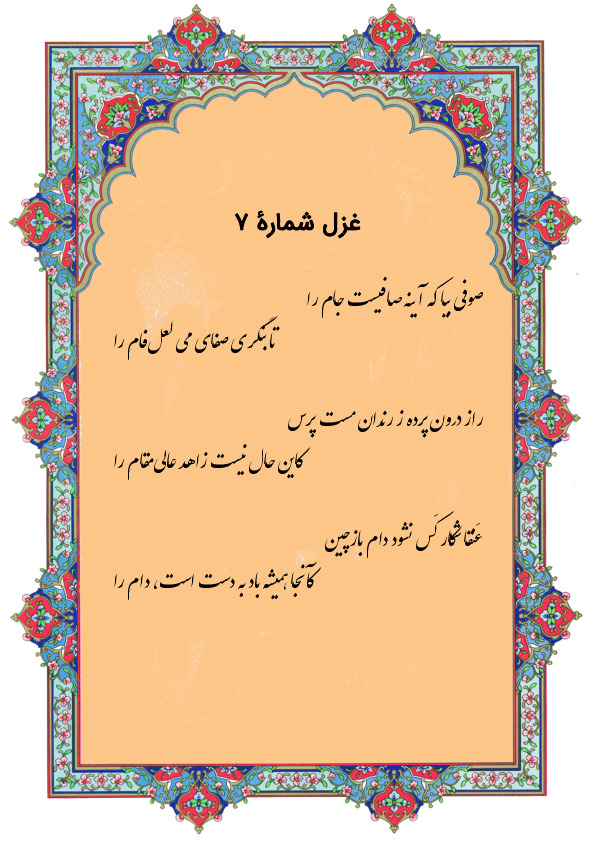 غزل شمارهٔ ۷
صوفی بیا که آینه صافیست جام را
تا بنگری صفای می لعل‌فام را
راز درون پرده ز رندان مست پرس
کاین حال نیست زاهد عالی‌مقام را
عَنقا شکار کَس نشود دام بازچین
کآنجا همیشه باد به دست است، دام را